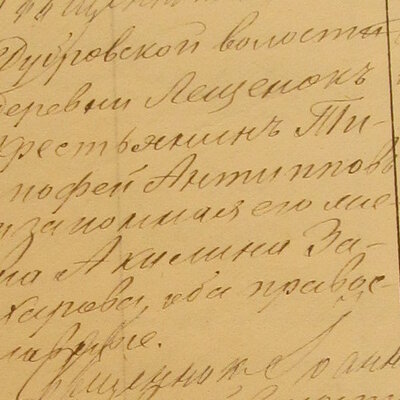 Дубровской волости
деревни Лещенокъ
крестьянинъ Ти-
мофей Антиповъ
и законная его же-
на Акилина За-
харова, оба правос-
лавные.
Священникъ Іоанн